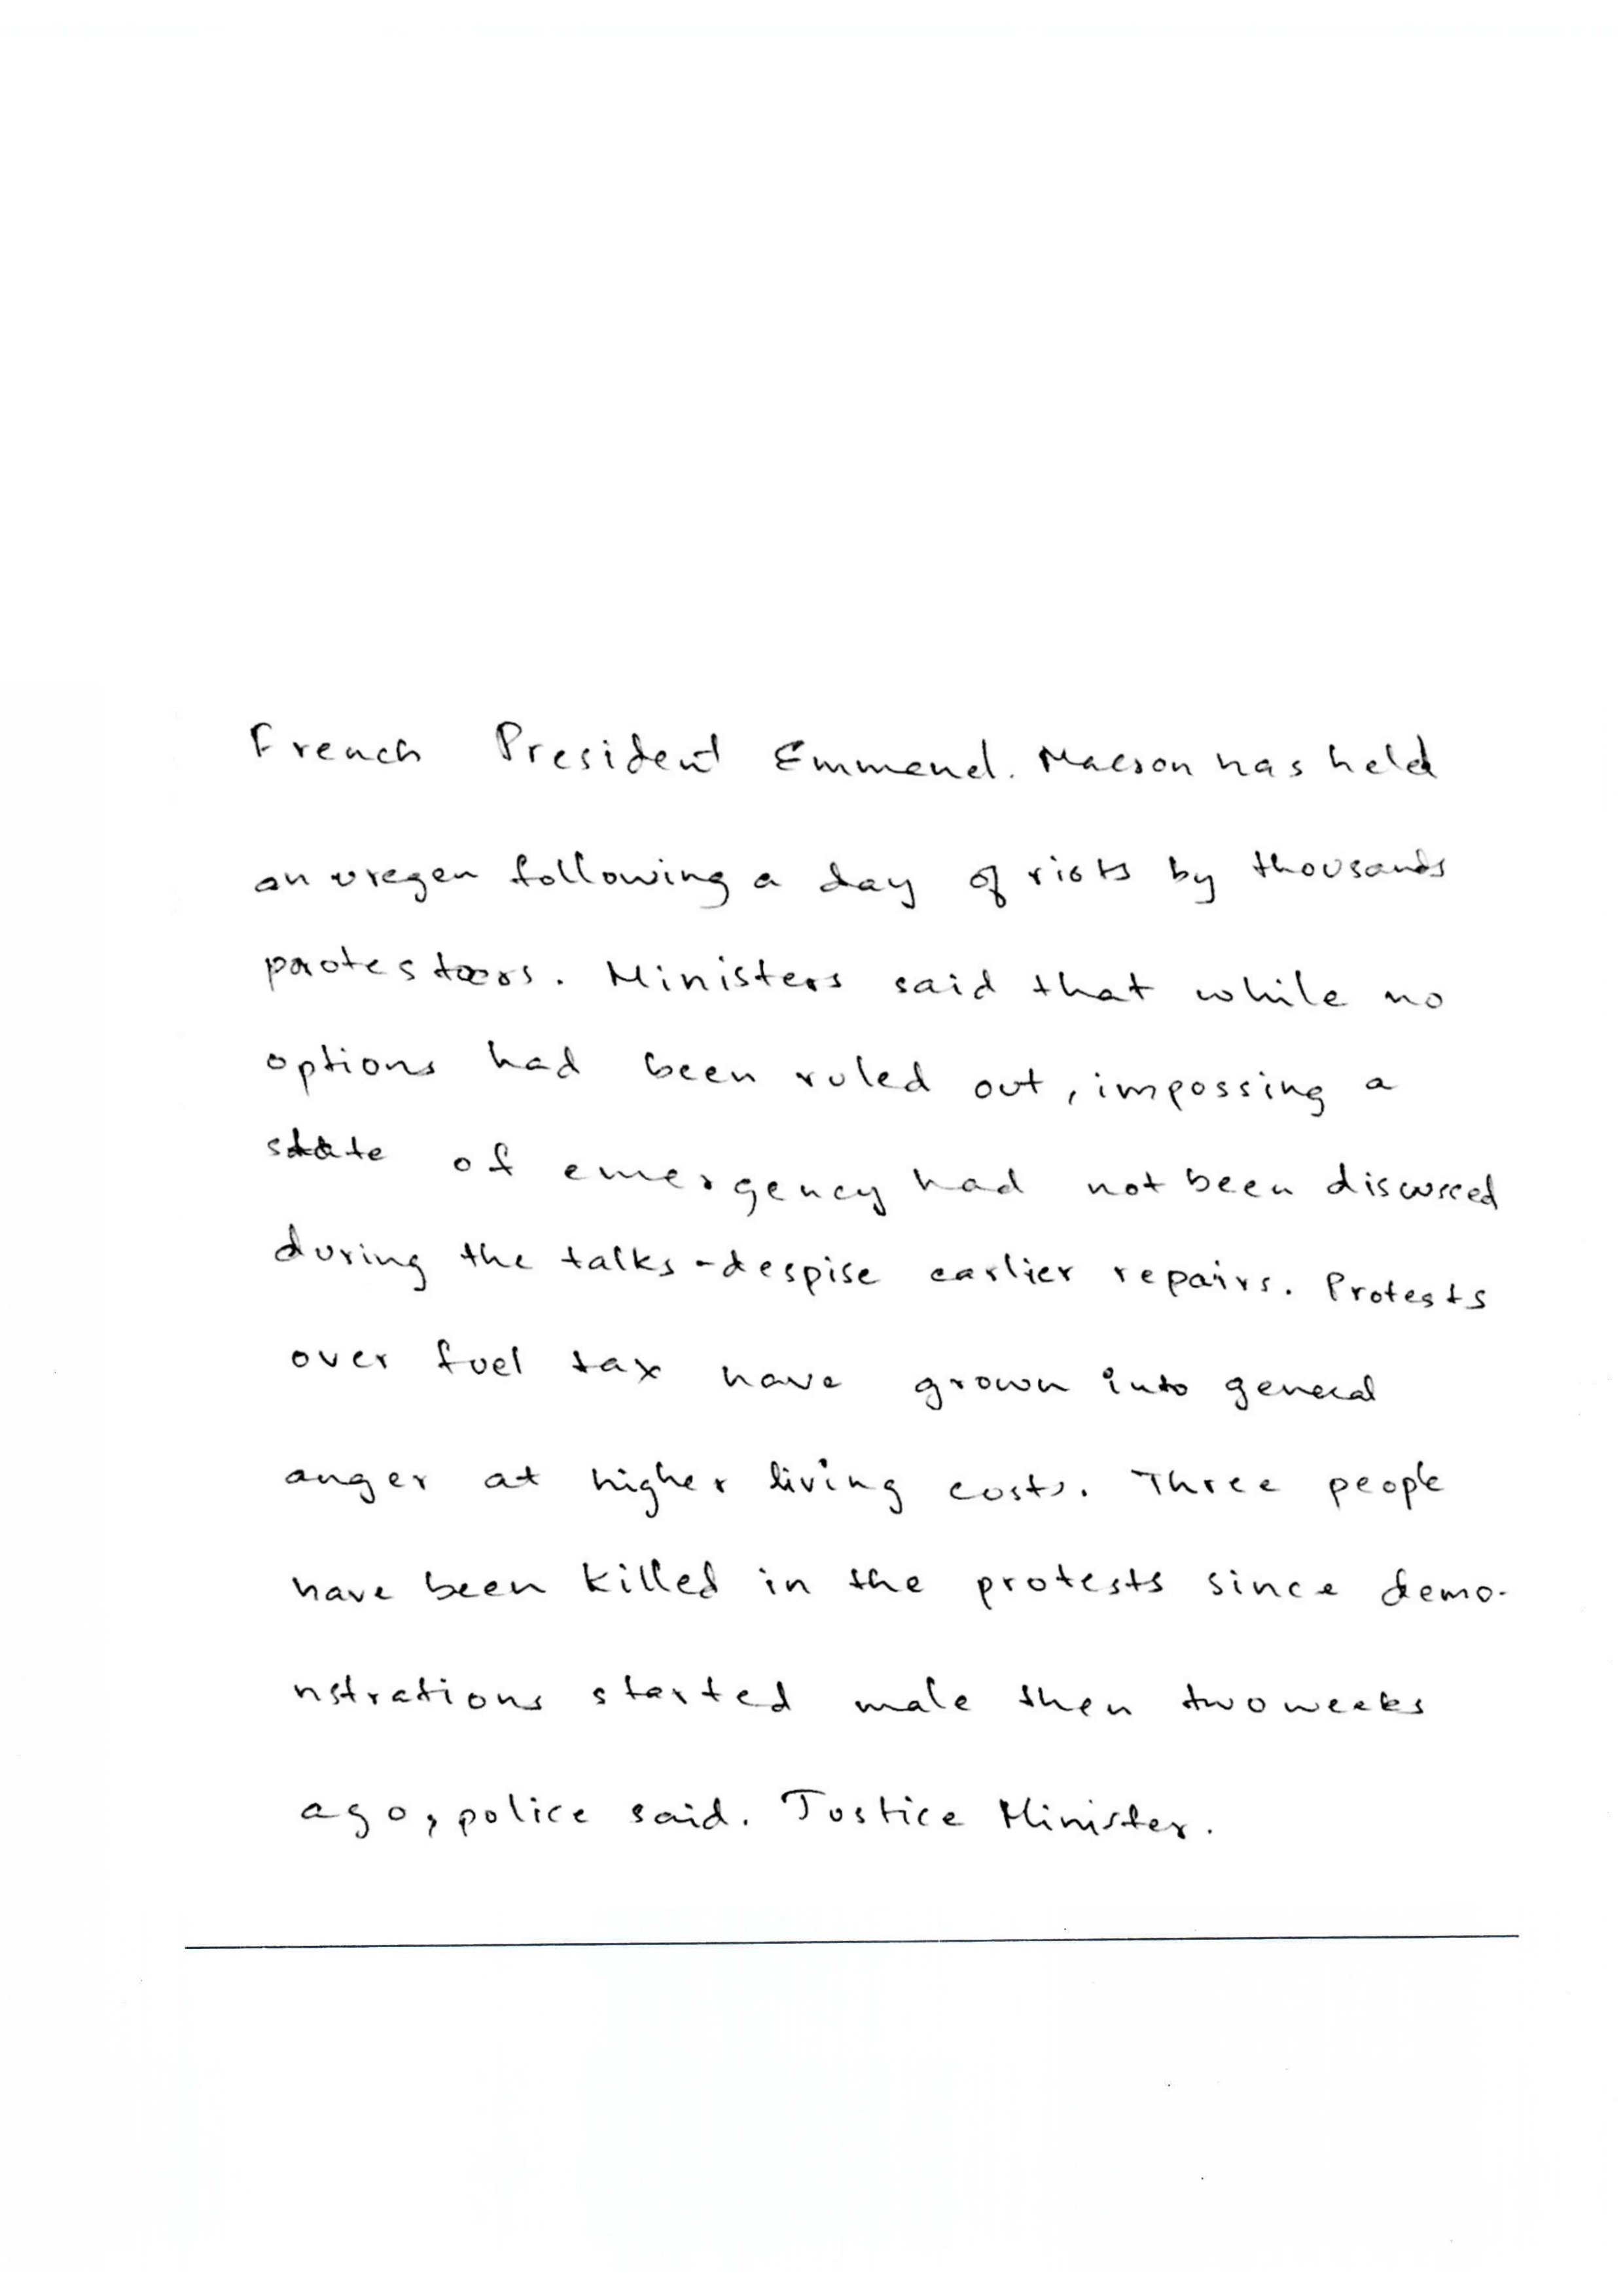 French President Emmenel. Macson has held
an uregen following a day of riots by thousands
protestors. Ministers said that while no
options had been ruled out, impossing a
state of emergency had not been discussed
during the talks - despise earlier repairs. Protests
over fuel tax have grown into general
anger at higher living costs. Three people
have been killed in the protests since demo-
nstrations started male then two weeks
ago, police said. Justice Minister.